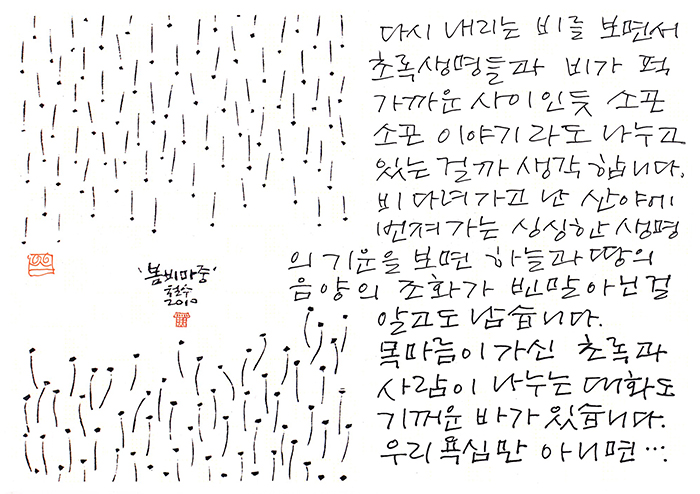 다시 내리는 비를 보면서
초록생명들과 비가 퍽
가까운 사이인듯 소곤
소곤 이야기라도 나누고
있는 걸까 생각합니다.
비 다녀가고 난 산야에
번져가는 싱싱한 생명
의 기운을 보면 하늘과 땅의
음양의 조화가 빈말아닌걸
알고도 남습니다.
목마름이 가신 초록과
사람이 나누는 대화도
기꺼운 바가 있습니다.
우리 욕심만 아니면….
'봄비마중'
2010